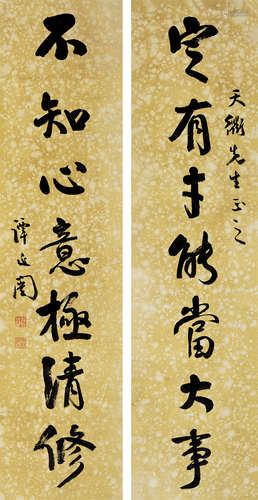 定有才能當大事
天衢先生正之
不知心意極清修
譚延闓